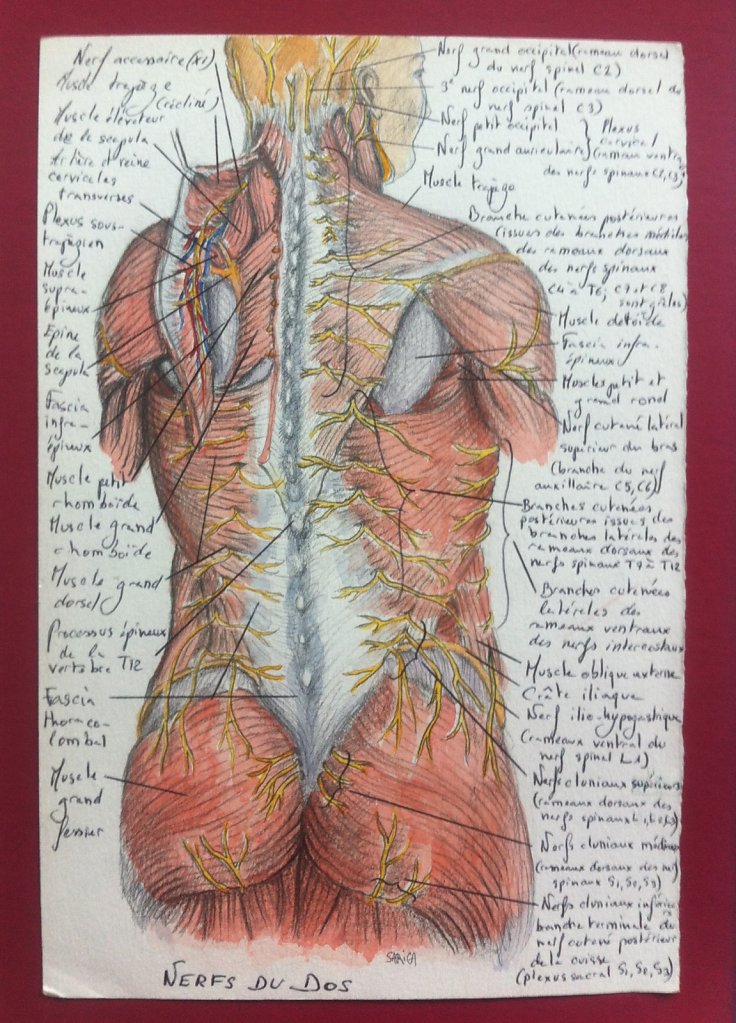 Nerf accessoire (XI)
Muscle trapèze
(récliné)
Muscle élévateur
de la scapula
Artère et veine
cervicales
transverses
Plexus sous-
trapézien
Muscle
supra-
épineux
Epine
de la
scapula
Fascia
infra-
épineux
Muscle petit
rhomboïde
Muscle grand
rhomboïde
Muscle grand
dorsal
Processus épineux
de la
vertèbre T12
Fascia
thoraco-
lombal
Muscle
grand
fessier
Nerf grand occipital (rameau dorsal
du nerf spinal C2)
3e nerf occipital (rameau dorsal du
nerf spinal C3)
Nerf petit occipital
Nerf grand auriculaire
Plexus
cervical
(rameau ventral
des nerfs spinaux C2, C3)
Muscle trapèze
Branche cutanées postérieures
(issues des branches médiales
des rameaux dorsaux
des nerfs spinaux
C4 à T6; C7 et C8
sont grêles)
Muscle deltoïde
Fascia infra-
épineux
Muscles petit et
grand rond
Nerf cutané latéral
supérieur du bras
(branche du nerf
auxillaire C5, C6)
Branches cutanées
postérieures issues des
branches latérales des
rameaux dorsaux des
nerfs spinaux T7 à T12
Branches cutanées
latérales des
rameaux ventraux
des nerfs intercostaux
Muscle oblique externe
Crête iliaque
Nerf ilio-hypogastrique
(rameaux ventral du
nerf spinal L1)
Nerfs cluniaux supérieurs
(rameaux dorsaux des
nerfs spinaux L1, L2, L3)
Nerfs cluniaux médiaux
(rameaux dorsaux des nerfs
spinaux S1, S2, S3)
Nerfs cluniaux inférieurs
branche terminale du
nerf cutané postérieur
de la cuisse
(plexus sacral S1, S2, S3)
SARIGA
NERFS DU DOS